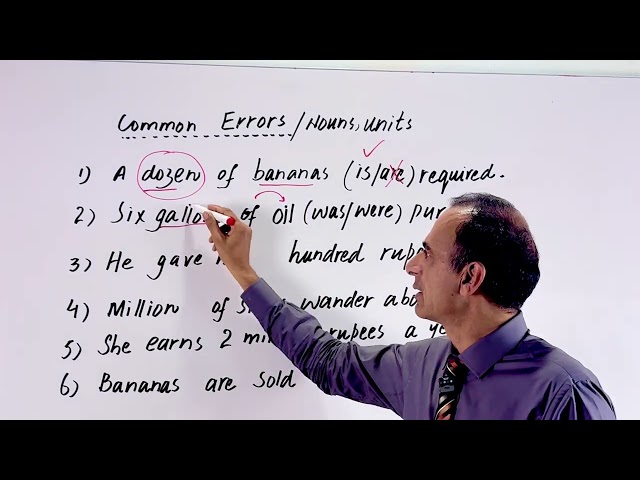 Common Errors/Nouns, units
1) A dozen of bananas (is/are) required.
2) Six of oil (was/were)
3) He gave hundred
4) Million of wander
5) She earns 2 a
6) Bananas are sold